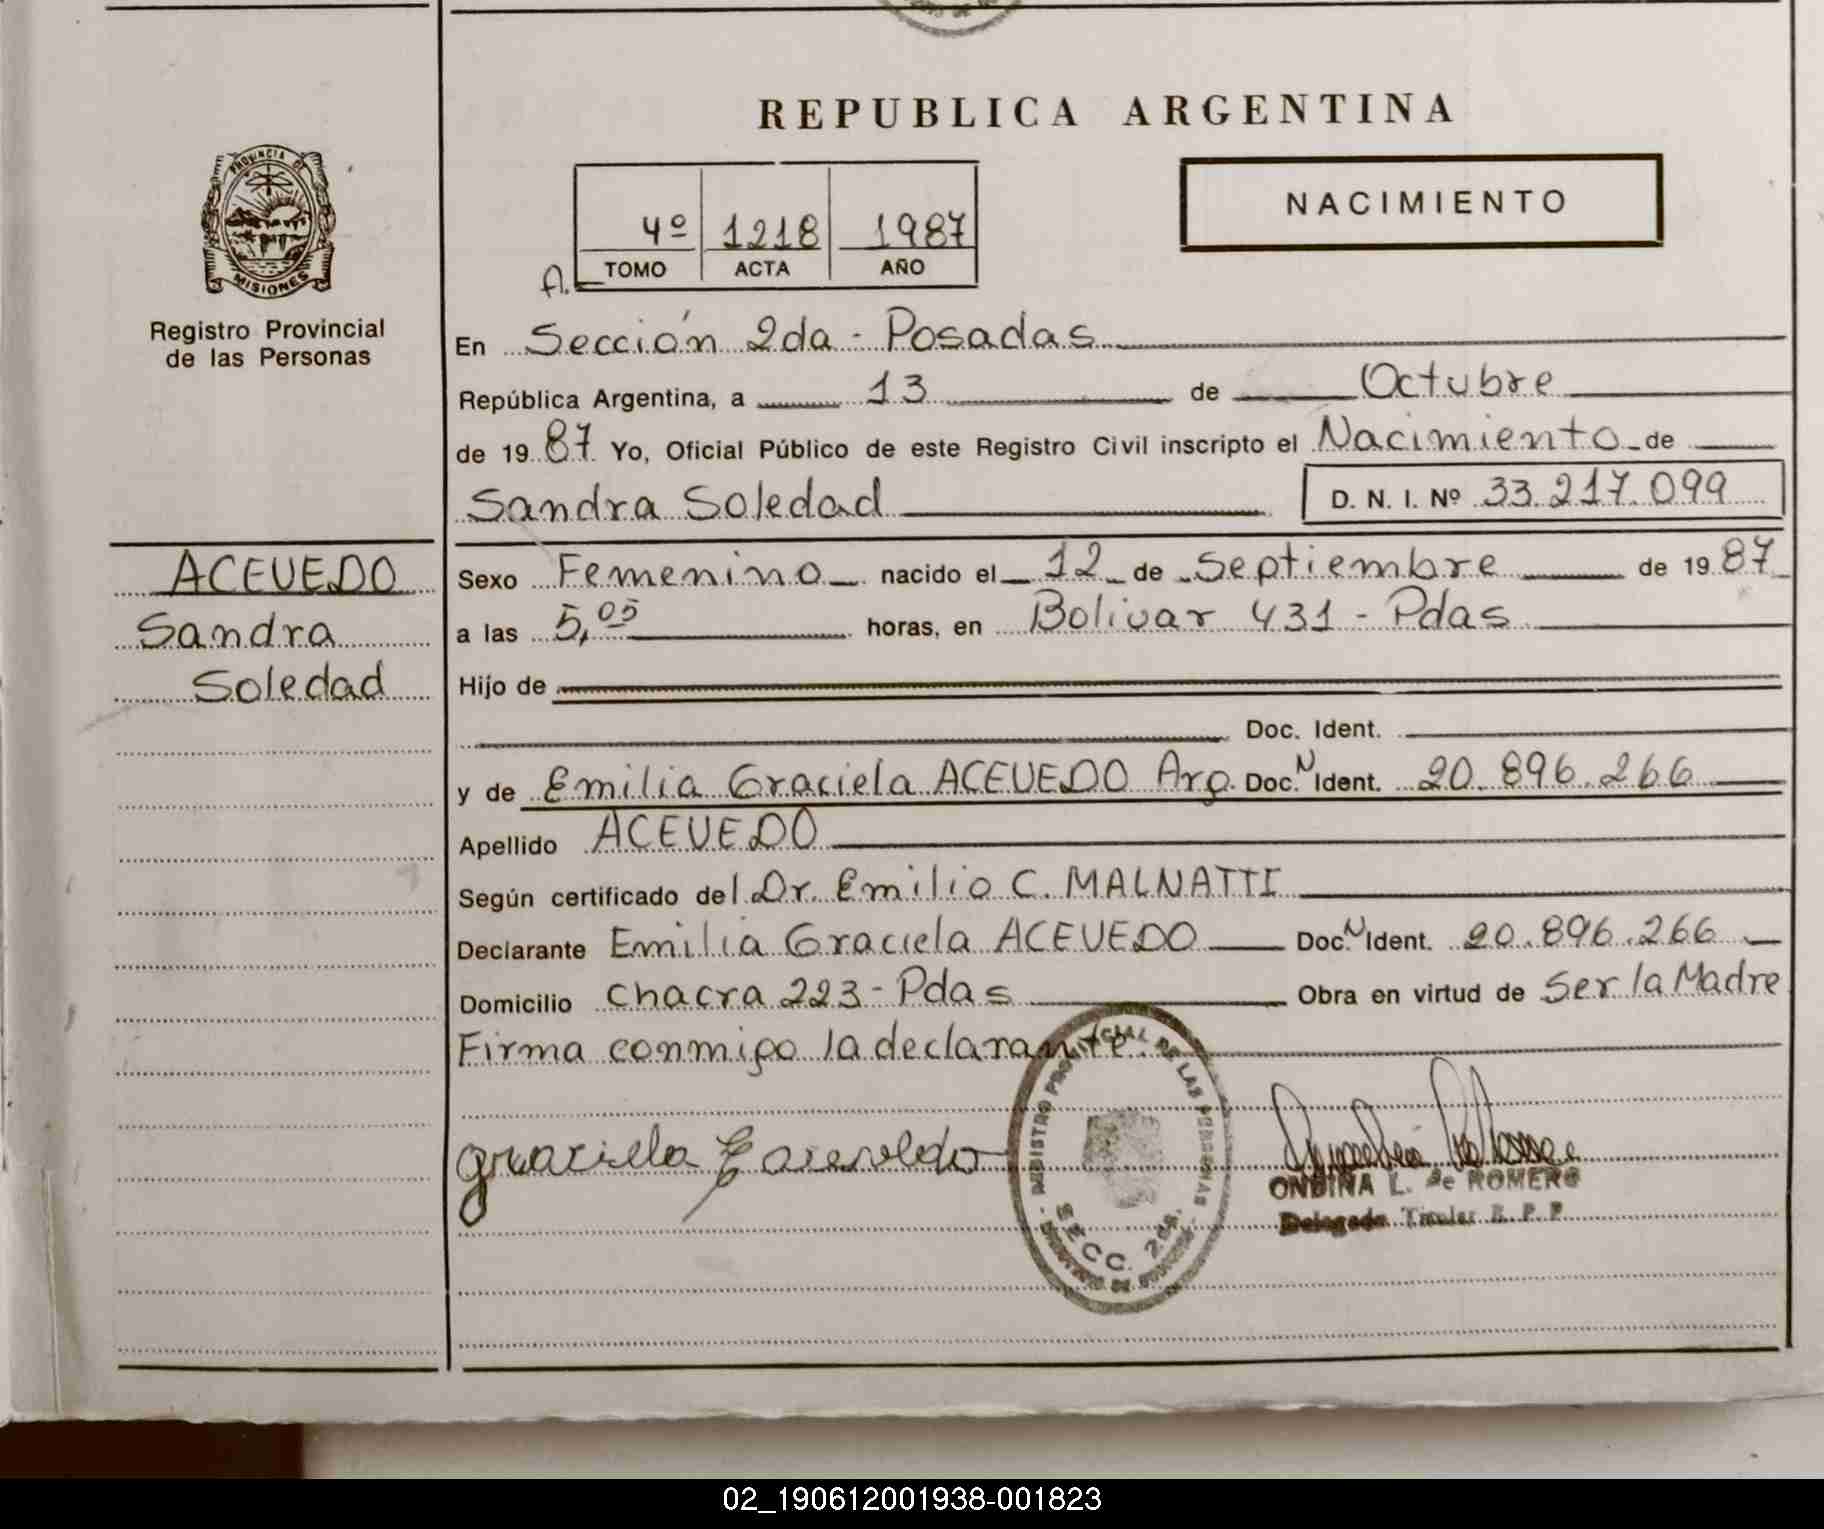 REPUBLICA ARGENTINA
NACIMIENTO
4º 1218 1987
A. TOMO ACTA AÑO
PROVINCIA DE
MISIONES
Registro Provincial
de las Personas
En Sección 2da - Posadas
República Argentina, a 13 de Octubre
de 1987 Yo, Oficial Público de este Registro Civil inscripto el Nacimiento de
Sandra Soledad D. N. I. Nº 33.217.099
ACEVEDO
Sandra
Soledad
Sexo Femenino nacido el 12 de Septiembre de 1987
a las 5,05 horas, en Bolivar 431 - Pdas
Hijo de
Doc. Ident.
y de Emilia Graciela ACEVEDO Arg. Doc. N Ident. 20.896.266
Apellido ACEVEDO
Según certificado del Dr. Emilio C. MALNATTI
Declarante Emilia Graciela ACEVEDO Doc. N Ident. 20.896.266
Domicilio Chacra 223 - Pdas Obra en virtud de Ser la Madre
Firma conmigo la declarante.
REGISTRO PROVINCIAL DE LAS PERSONAS
SECC. 2da.
ONDINA L. de ROMERO
Delegada Titular R. P. P.
02_190612001938-001823